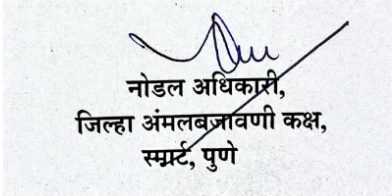 नोडल अधिकारी,
जिल्हा अंमलबजावणी कक्ष,
स्मार्ट, पुणे